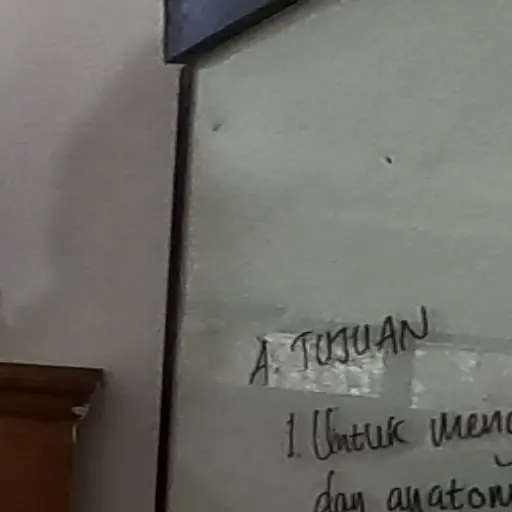 A. TUJUAN
1. Untuk meng
dan anatom